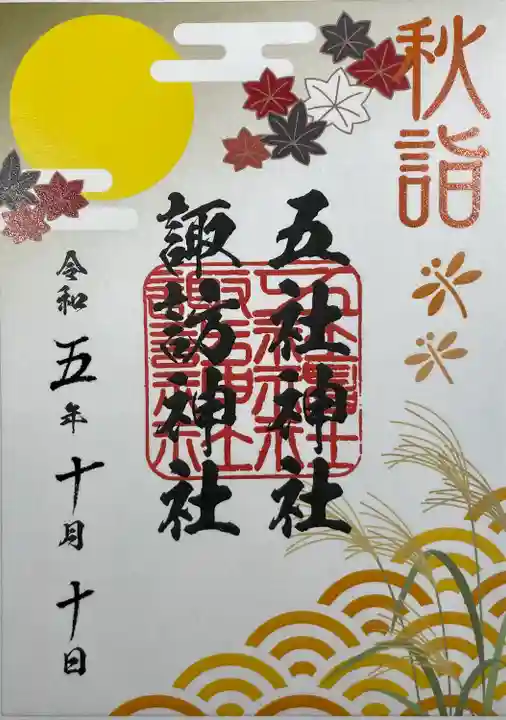 秋詣
五社神社
諏訪神社
令和五年十月十日